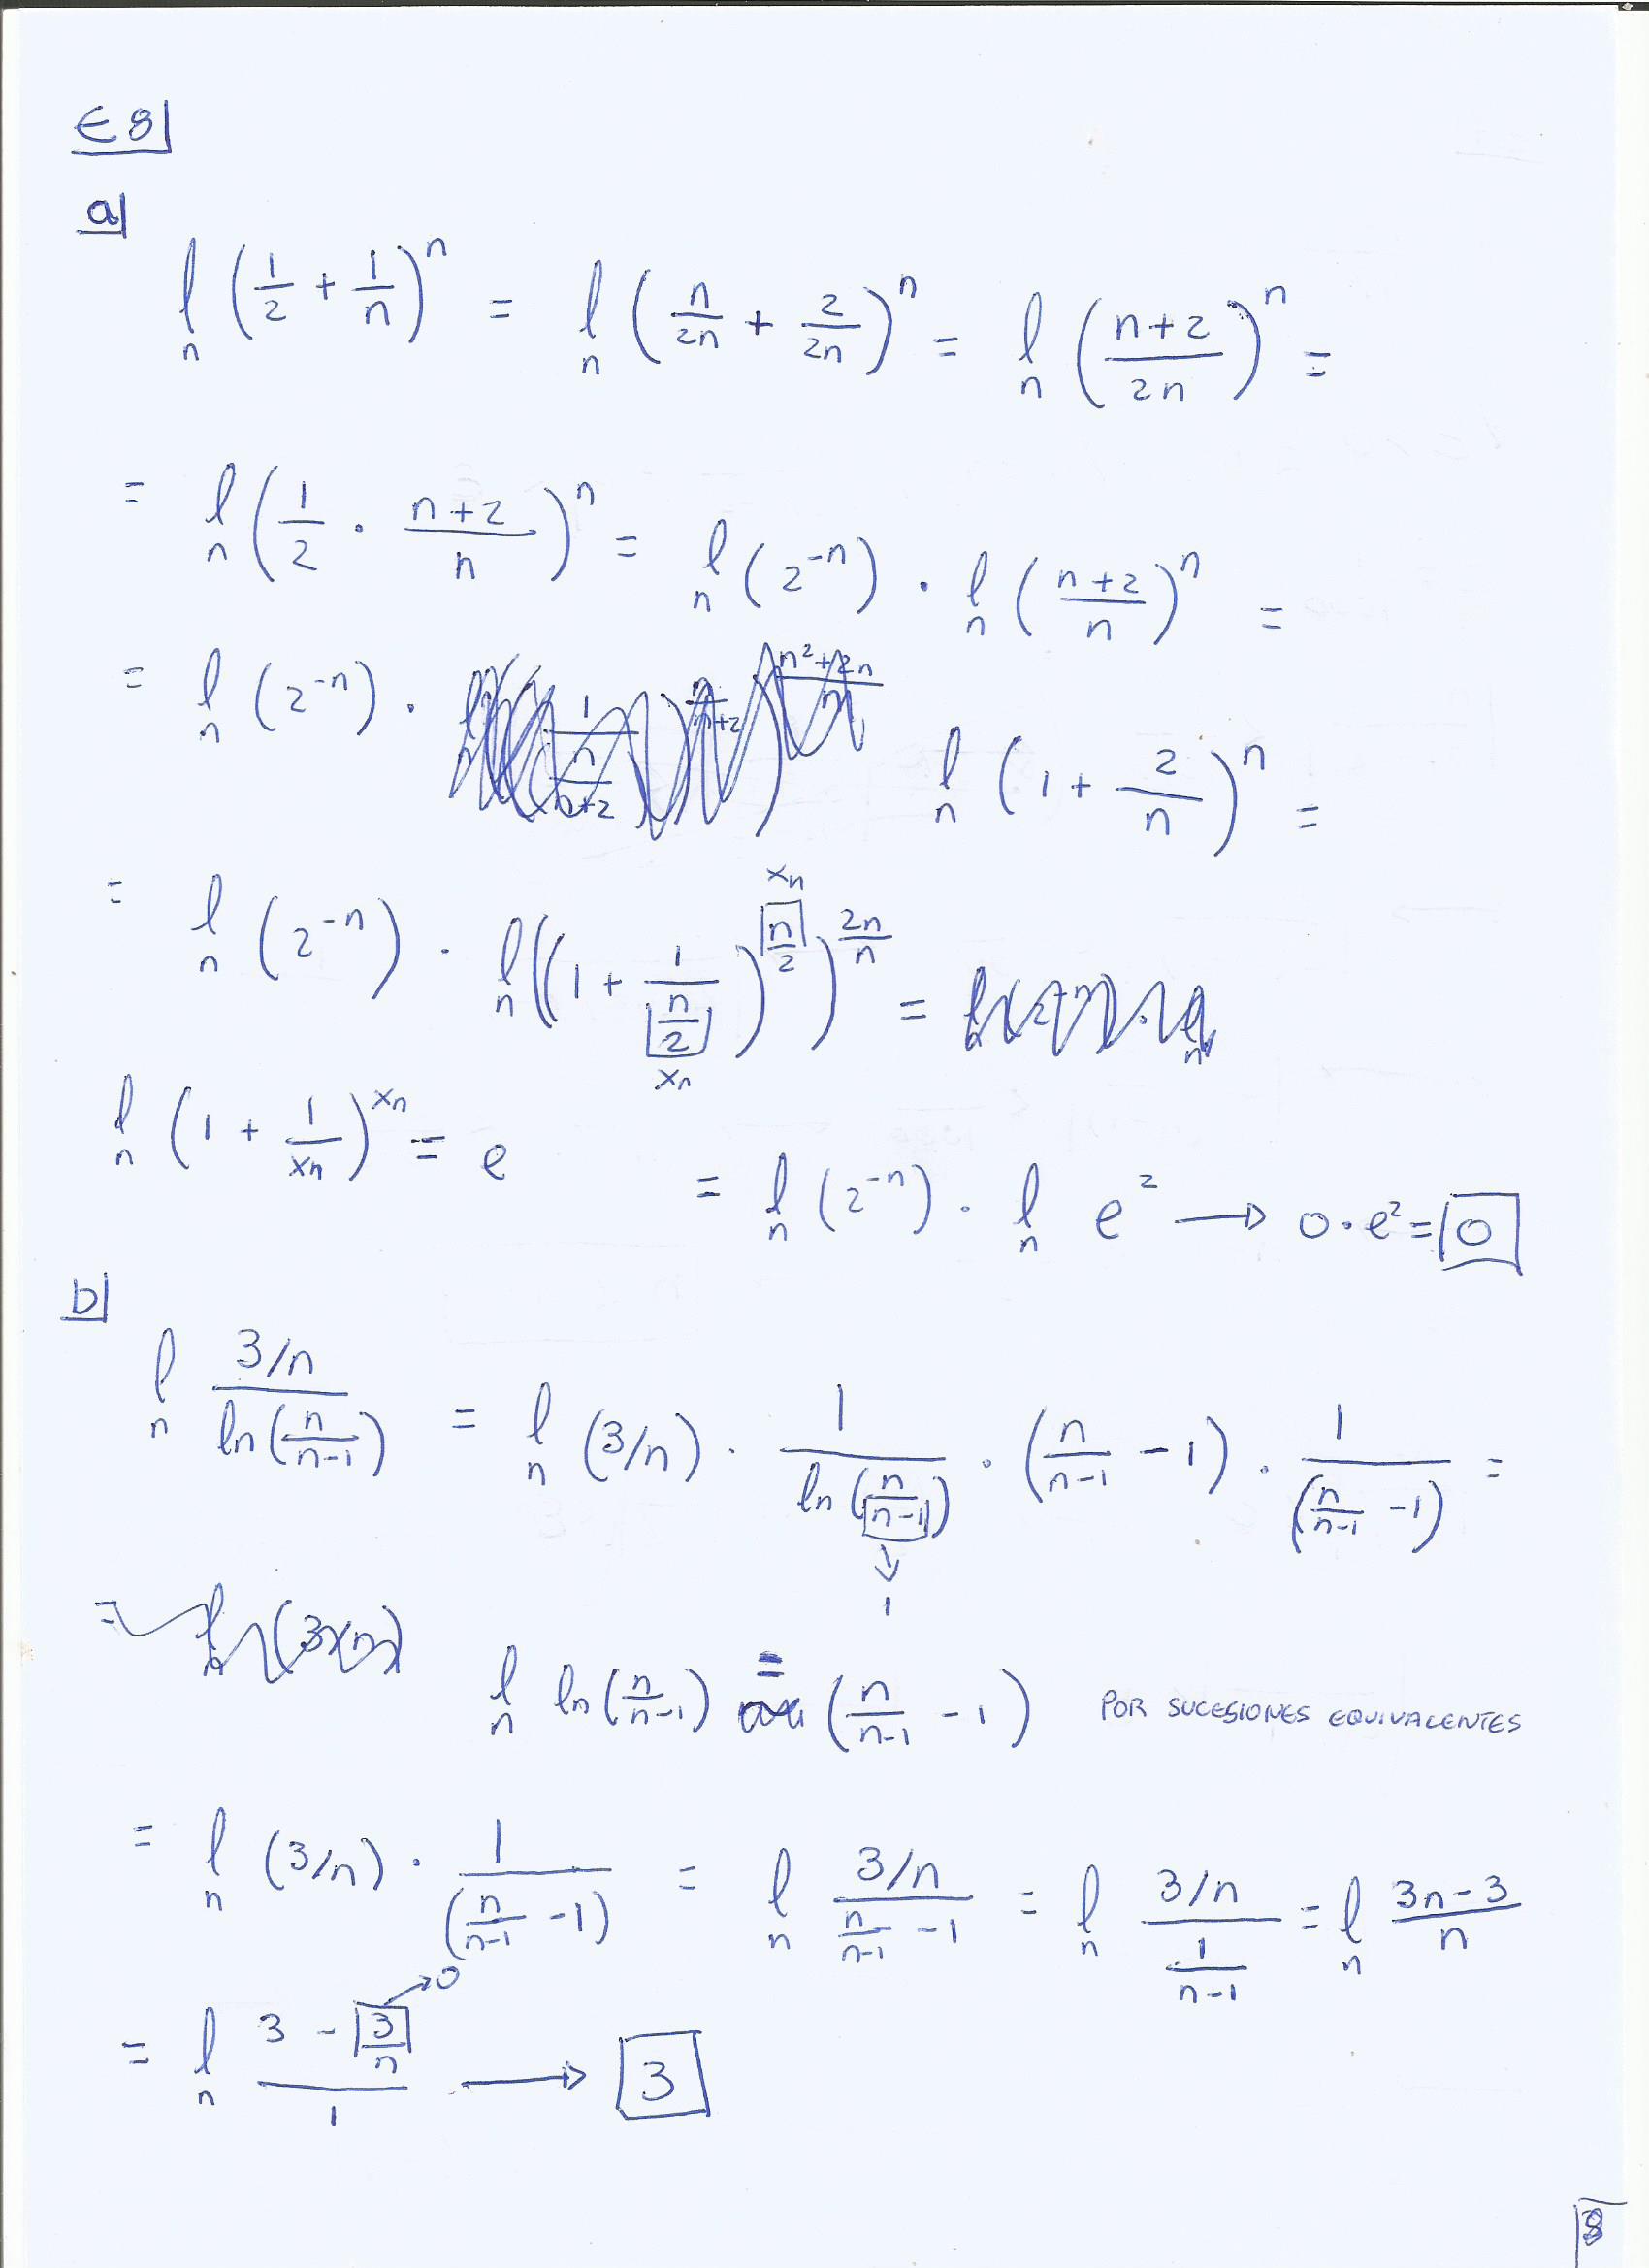 E8
a
l_n (1/2 + 1/n)^n = l_n (n/2n + 2/2n)^n = l_n ((n+2)/2n)^n =
= l_n (1/2 · (n+2)/n)^n = l_n (2^-n) · l_n ((n+2)/n)^n =
= l_n (2^-n) · l_n (1 + 2/n)^n =
= l_n (2^-n) · l_n ((1 + 1/(n/2))^(n/2))^(2n/n) =
xn
xn
l_n (1 + 1/xn)^xn = e
= l_n (2^-n) · l_n e^2 → 0 · e^2 = 0
b
l_n (3/n)/(ln(n/(n-1))) = l_n (3/n) · 1/(ln(n/(n-1))) · (n/(n-1) - 1) · 1/((n/(n-1) - 1)) =
↓
1
l_n ln(n/(n-1)) = (n/(n-1) - 1) POR SUCESIONES EQUIVALENTES
= l_n (3/n) · 1/((n/(n-1) - 1)) = l_n (3/n)/(n/(n-1) - 1) = l_n (3/n)/(1/(n-1)) = l_n (3n-3)/n
= l_n (3 - 3/n)/1 → 3
→0
8